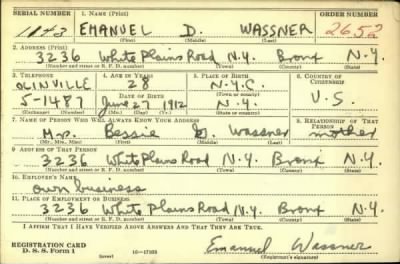 SERIAL NUMBER 1. NAME (Print) ORDER NUMBER
1143 EMANUEL D. WASSNER 2652
(First) (Middle) (Last)
2. ADDRESS (Print)
3236 White Plains Road N.Y. Bronx N.Y.
(Number and street or R. F. D. number) (Town) (County) (State)
3. TELEPHONE 4. AGE IN YEARS 5. PLACE OF BIRTH 6. COUNTRY OF CITIZENSHIP
OLINVILLE 28 N.Y.C.
DATE OF BIRTH (Town or county)
5-1487 June 27 1912 N.Y. U.S.
(Exchange) (Number) (Mo.) (Day) (Yr.) (State or country)
7. NAME OF PERSON WHO WILL ALWAYS KNOW YOUR ADDRESS 8. RELATIONSHIP OF THAT PERSON
Mrs. Bessie Wassner mother
(Mr., Mrs., Miss) (First) (Middle) (Last)
9. ADDRESS OF THAT PERSON
3236 White Plains Road N.Y. Bronx N.Y.
(Number and street or R. F. D. number) (Town) (County) (State)
10. EMPLOYER'S NAME
own business
11. PLACE OF EMPLOYMENT OR BUSINESS
3236 White Plains Road N.Y. Bronx N.Y.
(Number and street or R. F. D. number) (Town) (County) (State)
I AFFIRM THAT I HAVE VERIFIED ABOVE ANSWERS AND THAT THEY ARE TRUE.
REGISTRATION CARD
D. S. S. Form 1 (over) Emanuel Wassner
(Registrant's signature)